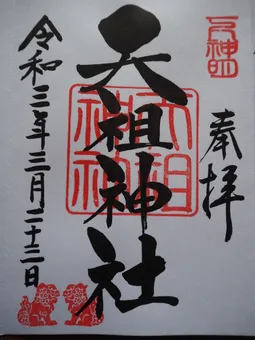 奉拝
天祖神社
天祖神社
令和三年三月二十三日